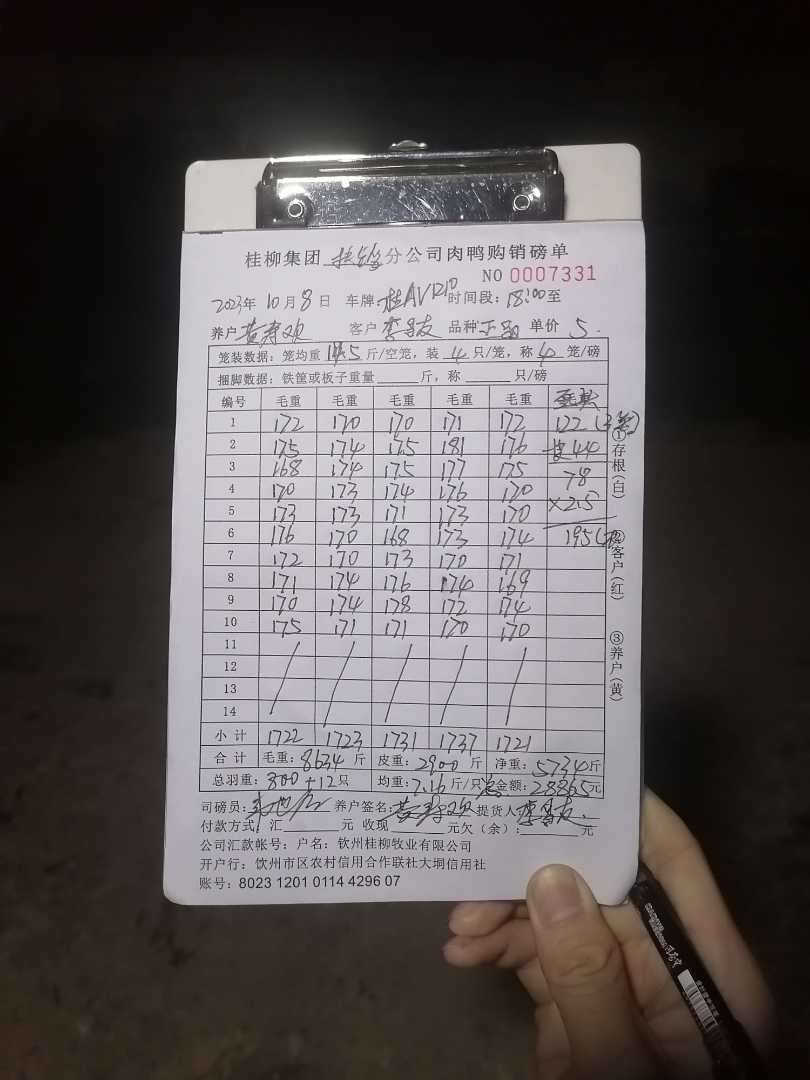 桂柳集团 分公司肉鸭购销磅单
NO 0007331
2023年 10月 8日 车牌: 桂AV1210 时间段: 18:00至
养户 黄寿欢 客户 李昌友 品种 单价 5.
笼装数据: 笼均重 14.5 斤/空笼, 装 4 只/笼, 称 4 笼/磅
捆脚数据: 铁筐或板子重量 斤, 称 只/磅
编号 毛重 毛重 毛重 毛重 毛重
1 172 170 170 171 172 122
2 175 174 175 181 176 44
3 168 174 175 177 175 78
4 170 173 174 176 170 ×2.5
5 173 173 171 173 170
6 176 170 168 173 174 195
7 172 170 173 170 171
8 171 174 176 174 169
9 170 174 178 172 174
10 175 171 171 170 170
11
12
13
14
小计 1722 1723 1731 1737 1721
合计 毛重: 8634 斤 皮重: 2900 斤 净重: 5734 斤
总羽重: 800+12只 均重: 7.16 斤/只 总金额: 28865元
司磅员: 养户签名: 黄寿欢 提货人 李昌友.
付款方式: 汇 元 收现 元欠(余): 元
公司汇款帐号: 户名: 钦州桂柳牧业有限公司
开户行: 钦州市区农村信用合作联社大垌信用社
账号: 8023 1201 0114 4296 07
①存根(白) ②客户(红) ③养户(黄)